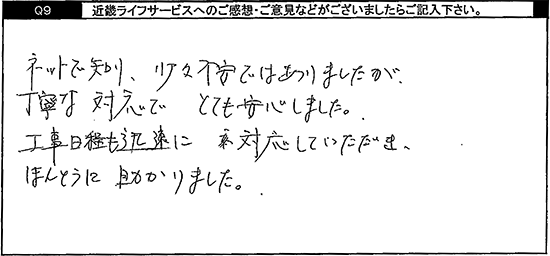 Q9 近畿ライフサービスへのご感想・ご意見などがございましたらご記入下さい。
ネットで知り、少々不安ではありましたが、
丁寧な対応で とても安心しました。
工事日程も迅速に 対応していただき、
ほんとうに 助かりました。